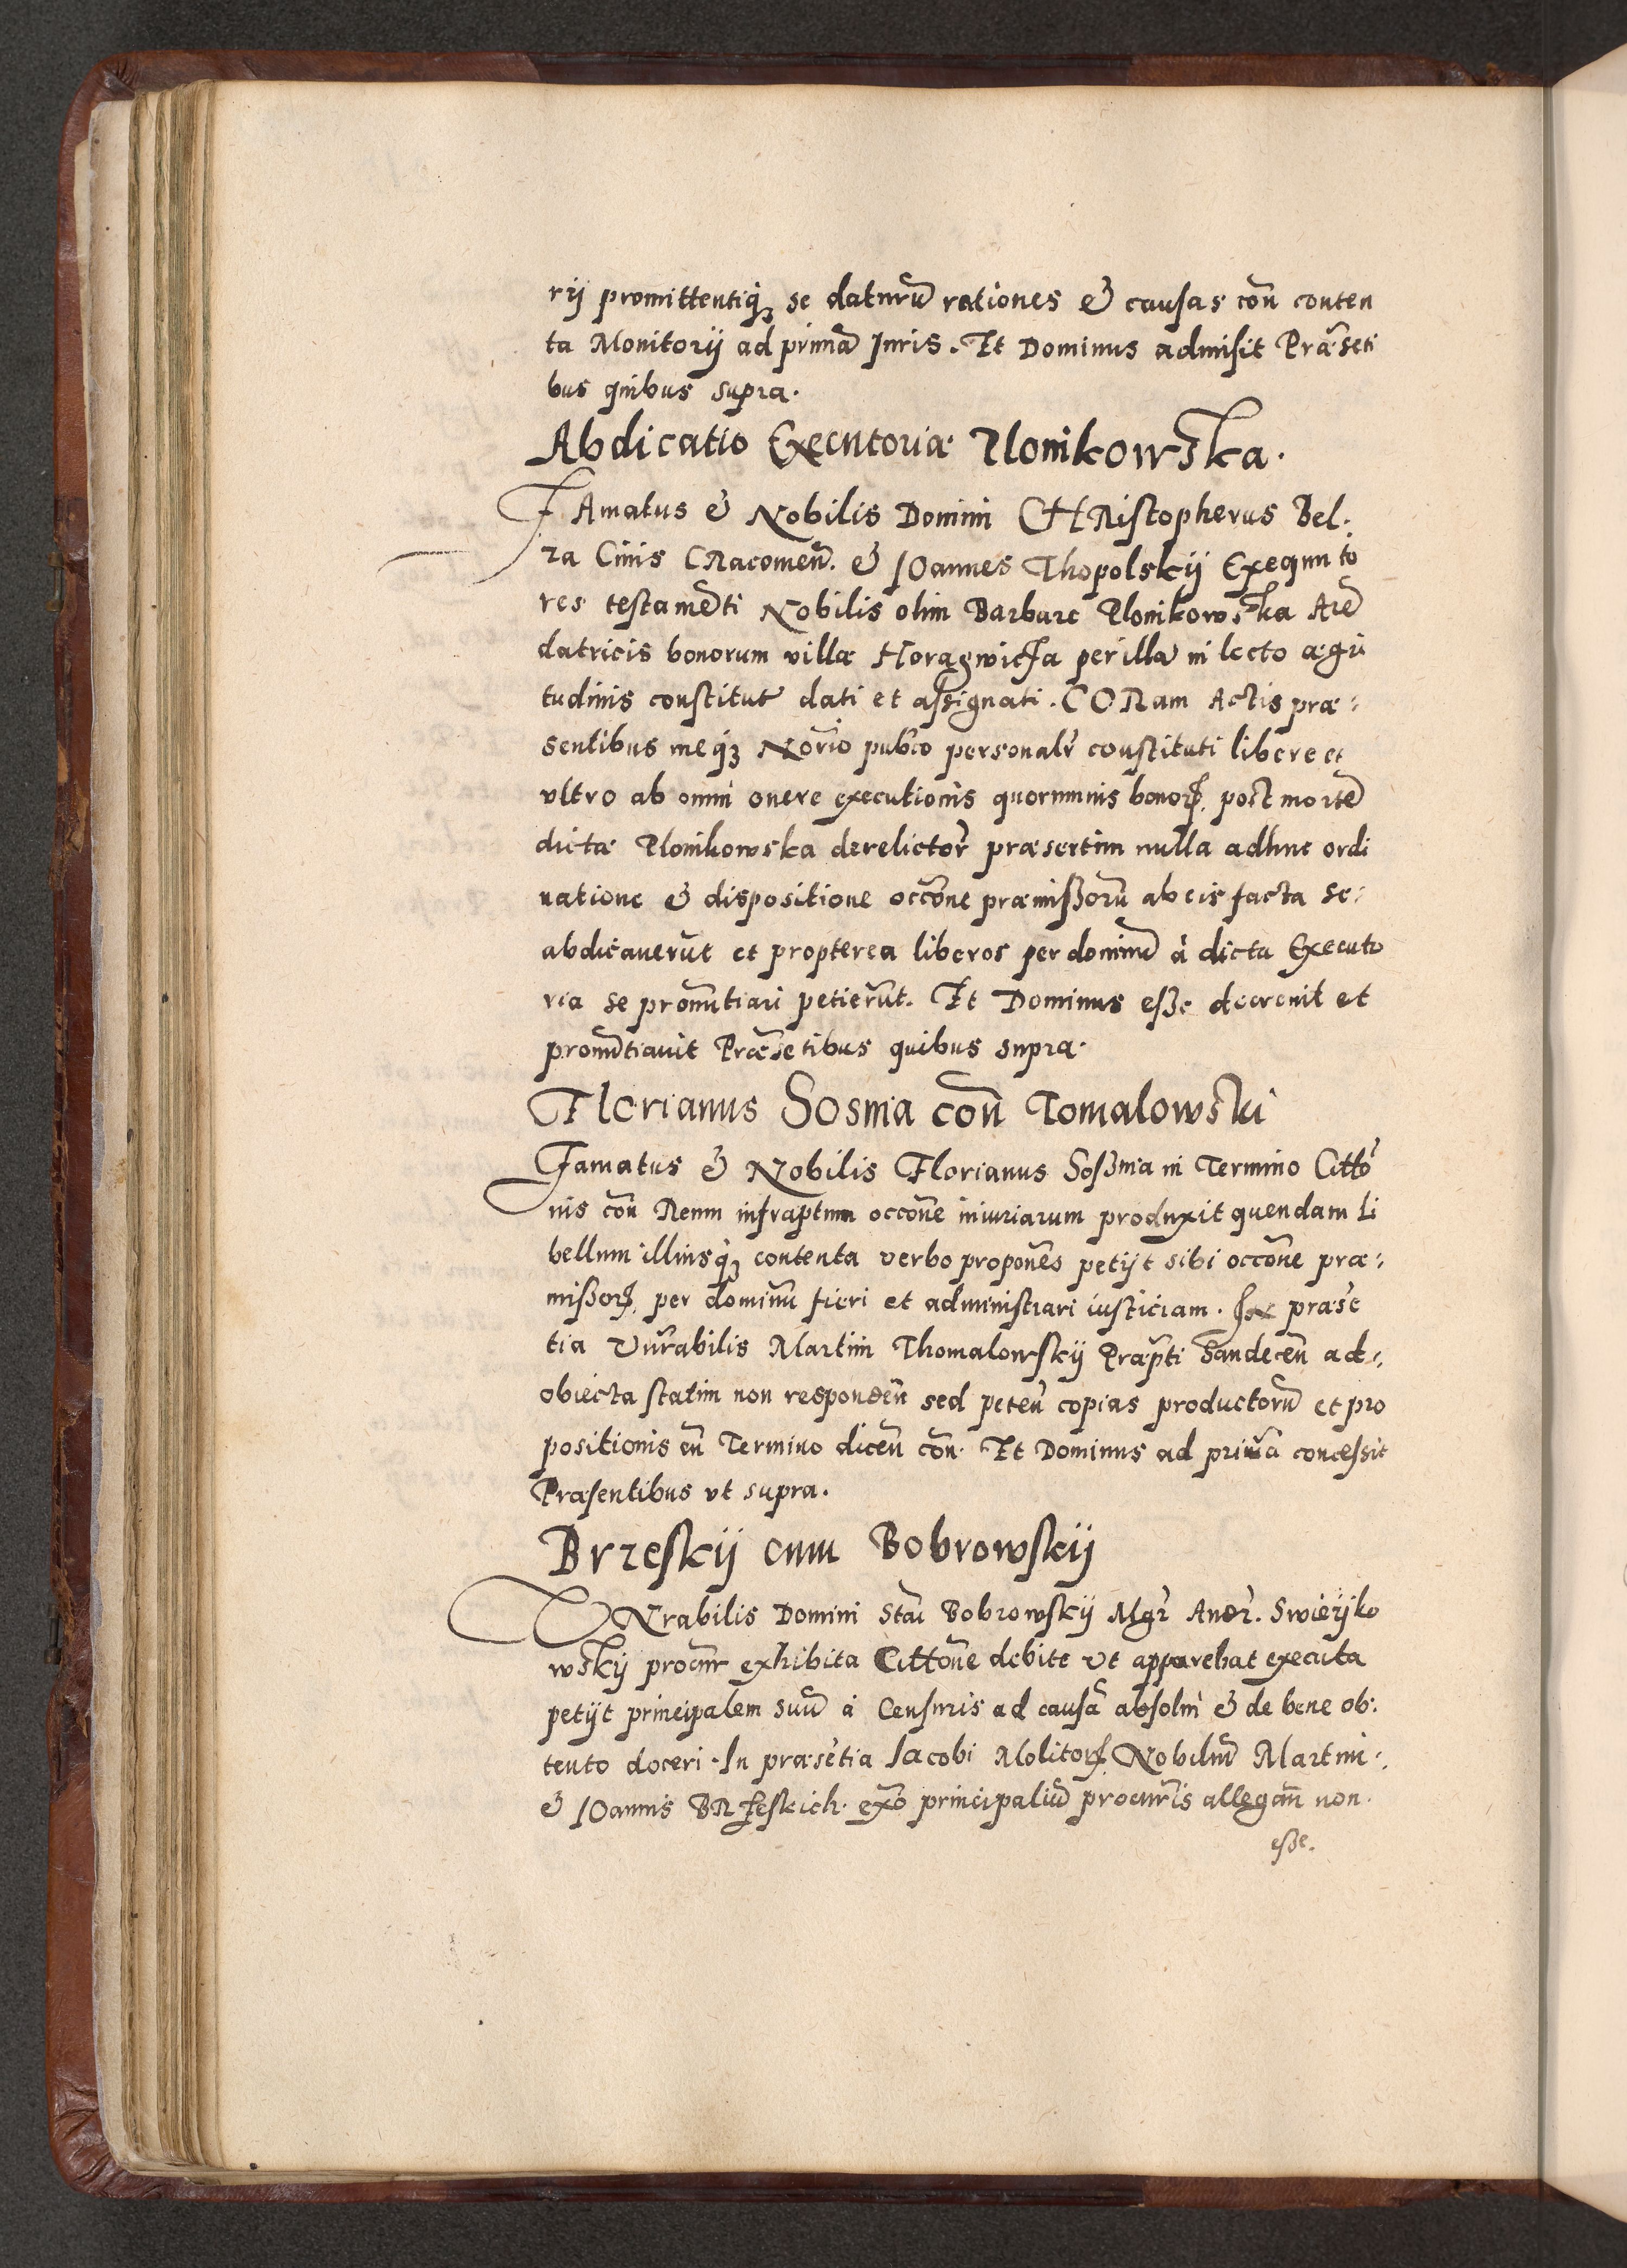 rij promittentiq₃ se daturū rationes & causas coñ conten
ta Monitorij ad primā Iuris. Et Dominus admisit Præseti
bus quibus supra.
Abdicatio Executoriæ Plonikowska.
FAmatus & Nobilis Domini CHRistopherus Bel.
za Ciuis CRacouien̄. & IOannes Thopolskij Exequuto
res testamēti Nobilis olim Barbare Plonikowska Arē
datricis bonorum villæ perillā in lecto ægri
tudinis constitut dati et assignati. CORam Actis præ:
sentibus meq₃ Norīo pubco personalr̄ constituti libere et
vltro ab omni onere executionis quorumuis bonoꝝ. post mortē
dictæ Plonikowska derelictor̄ præsertim nulla adhuc ordi
natione & dispositione occōne præmissorū ab eis facta se:
abdicauerūt et propterea liberos per dominū à dicta Executo
ria se pronūtiari petierūt. Et Dominus esse decreuit et
pronūtiauit Præsētibus quibus supra.
Florianus Sosnia con̄ Tomalowski
Famatus & Nobilis Florianus Sossnia in Termino Cittō
nis con̄ Reum infraptum occōne iniuriarum produxit quendam Li
bellum illiusq₃ contenta verbo proponēs petijt sibi occōne præ:
missoꝝ. per dominū fieri et administrari iusticiam. præsē
tia Vnrabilis Martini Thomalowskij Præpti Sandecen̄ ad:
obiecta statim non responden̄ sed peten̄ copias productorū et pro
positionis en̄ Termino dicen̄ con̄. Et Dominus ad primā concessit
Præsentibus vt supra.
Brzeskij cum Bobrowskij
VNrabilis Domini Stāi Bobrowskij Mgr̄ Andr̄. Swierzko
wskij procur̄ exhibita Cittōne debite vt apparebat executa
petijt principalem suū à Censuris ad causā absolui & de bene ob:
tento doceri. In præsētia Iacobi Molitoꝝ. Nobiliū Martini:
& IOannis BRzeskich. exō principaliū procur̄is allegan̄ non.
esse.